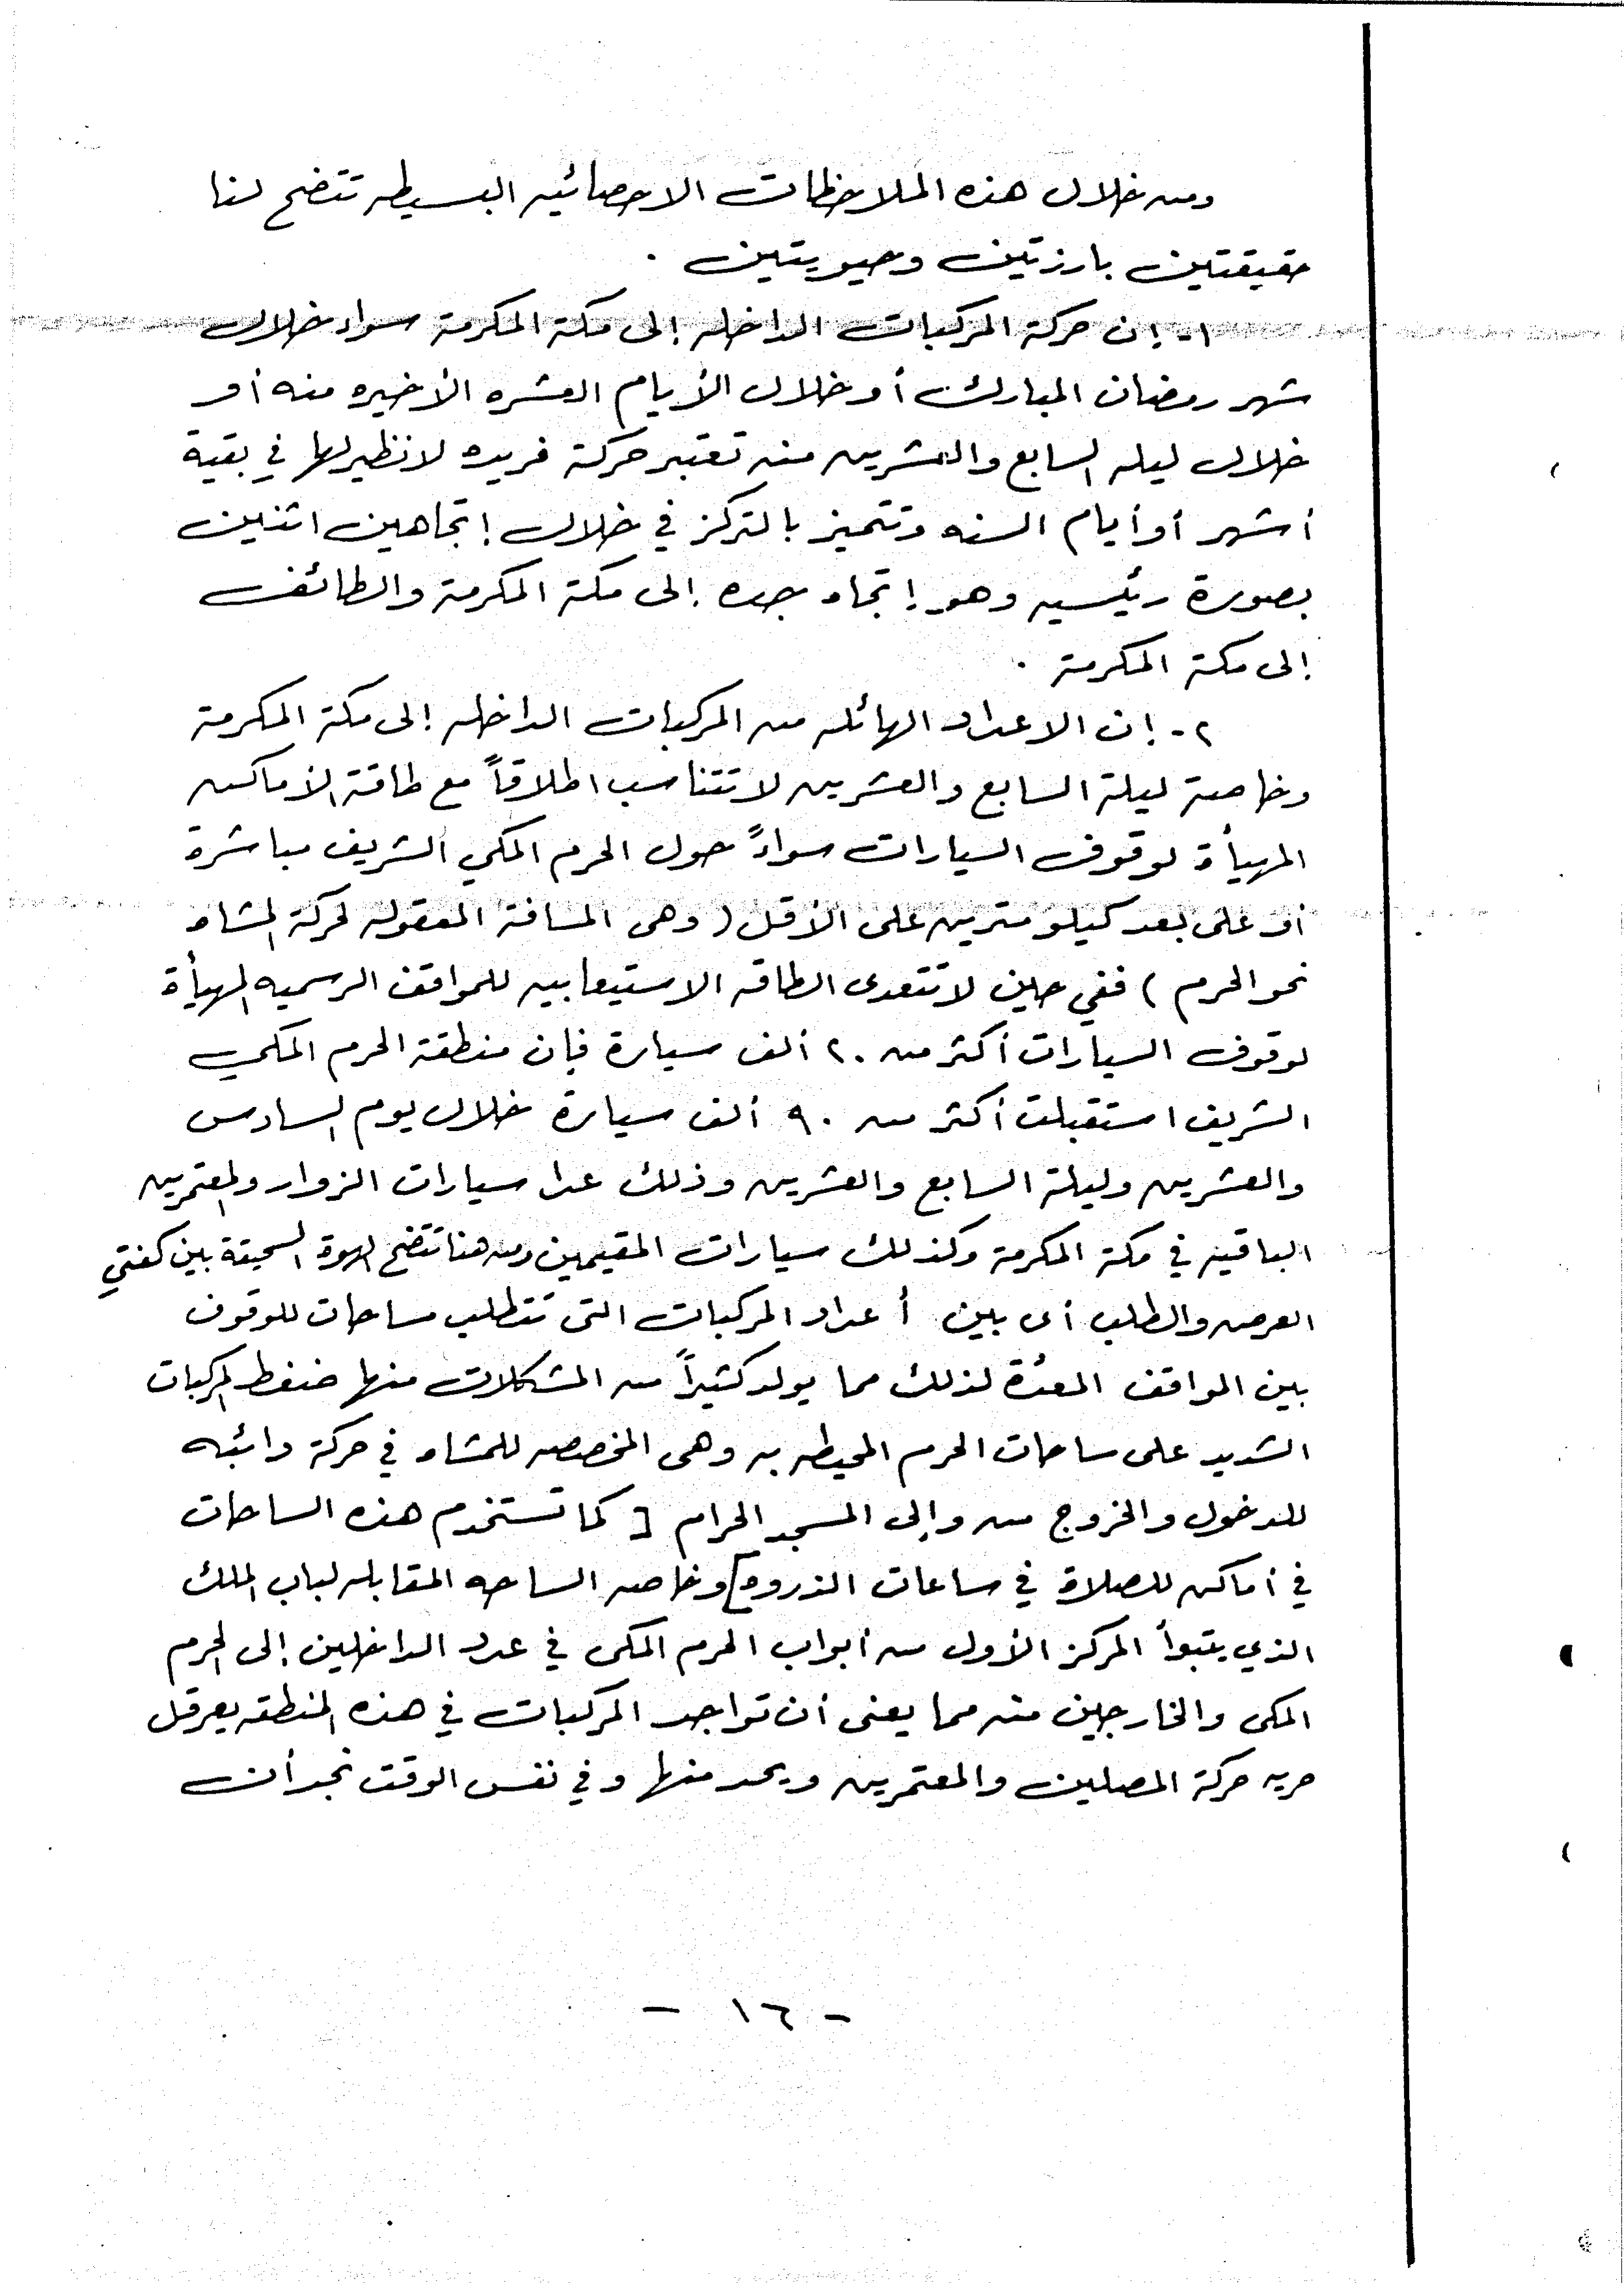 ومن خلال هذه الملاحظات الاحصائيه البسيطه تتضح لنا
حقيقتين بارزتين وحيويتين .
١- إن حركة المركبات الداخله إلى مكة المكرمة سواء خلال
شهر رمضان المبارك أو خلال الأيام العشره الأخيره منه أو
خلال ليله السابع والعشرين منه تعتبر حركة فريده لا نظير لها في بقية
أشهر أو أيام السنه وتتميز بالتركز في خلال إتجاهين اثنين
بصورة رئيسيه وهو إتجاه جده إلى مكة المكرمة والطائف
إلى مكة المكرمة .
٢- إن الاعداد الهائله من المركبات الداخله إلى مكة المكرمة
وخاصة ليلة السابع والعشرين لا تتناسب اطلاقاً مع طاقة الأماكن
المهيأة لوقوف السيارات سواءً حول الحرم المكي الشريف مباشرة
أو على بعد كيلو مترين على الأقل ( وهى المسافة المعقوله لحركة المشاه
نحو الحرم ) ففي حين لا تتعدى الطاقه الاستيعابيه للمواقف الرسميه المهيأة
لوقوف السيارات أكثر من ٢٠ ألف سيارة فإن منطقة الحرم المكي
الشريف استقبلت أكثر من ٩٠ ألف سيارة خلال يوم السادس
والعشرين وليلة السابع والعشرين وذلك عدا سيارات الزوار والمعتمرين
الباقين في مكة المكرمة وكذلك سيارات المقيمين ومن هنا تتضح الهوة السحيقة بين كفتي
العرض والطلب أى بين أعداد المركبات التى تتطلب مساحات للوقوف
بين المواقف المعدّة لذلك مما يولد كثيراً من المشكلات منها ضغط المركبات
الشديد على ساحات الحرم المحيطه به وهى المخصصه للمشاه في حركة دائبه
للدخول والخروج من وإلى المسجد الحرام [ كما تستخدم هذه الساحات
في أماكن للصلاة في ساعات الذروه ] وخاصه الساحه المقابله لباب الملك
الذي يتبوأ المركز الأول من أبواب الحرم المكى في عدد الداخلين إلى الحرم
المكى والخارجين منه مما يعنى أن تواجد المركبات في هذه المنطقه يعرقل
حريه حركة المصلين والمعتمرين ويحد منها وفي نفس الوقت نجد أن
- ١٦ -